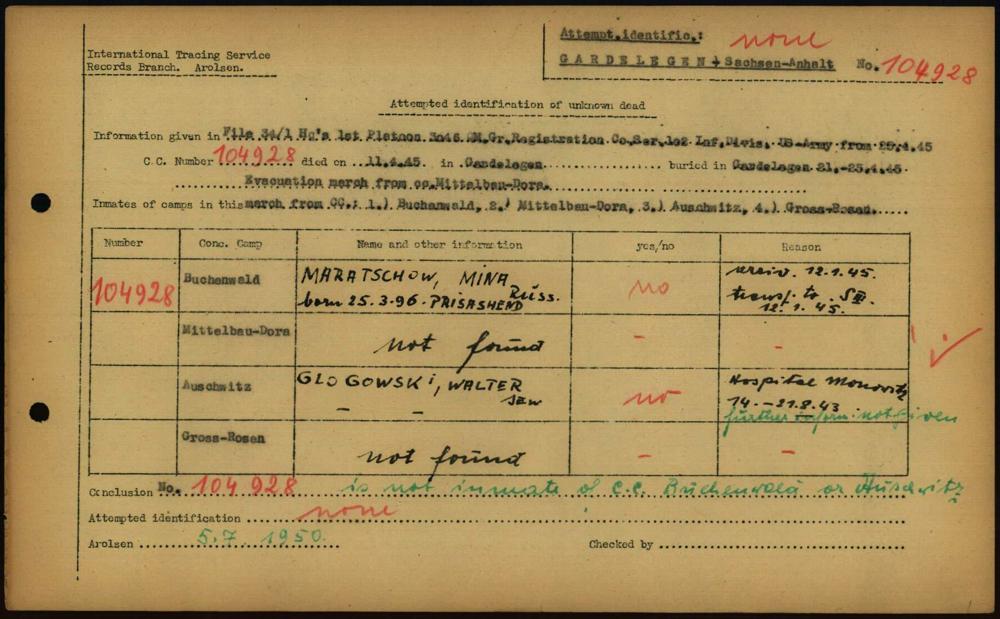 Attempt.identific.: none
International Tracing Service
Records Branch. Arolsen.
GARDELEGEN, Sachsen-Anhalt No. 104928
Attempted identification of unknown dead
Information given in File 34/1 Hq's 1st Platoon 3046 QM.Gr.Registration Co.Ser.102 Inf.Divis. US-Army from 25.4.45
C.C. Number 104928 died on 11.4.45. in Gardelegen buried in Gardelegen 21.-25.4.45.
Evacuation march from cc.Mittelbau-Dora.
Inmates of camps in this march from CC.: 1.) Buchenwald, 2.) Mittelbau-Dora, 3.) Auschwitz, 4.) Gross-Rosen.
Number Conc. Camp Name and other information yes/no Reason
104928 Buchenwald MARATSCHOW, MINA Russ. born 25.3.96. PRISASHEND no 12.1.45. transf. to S III. 12.1.45.
Mittelbau-Dora not found - -
Auschwitz GLOGOWSKI, WALTER Jew - - no Hospital Monowitz 14.-21.8.43 further inform. not given
Gross-Rosen not found - -
Conclusion No. 104928 is not inmate of C.C. Buchenwald or Auschwitz
Attempted identification none
Arolsen 5.7.1950. Checked by